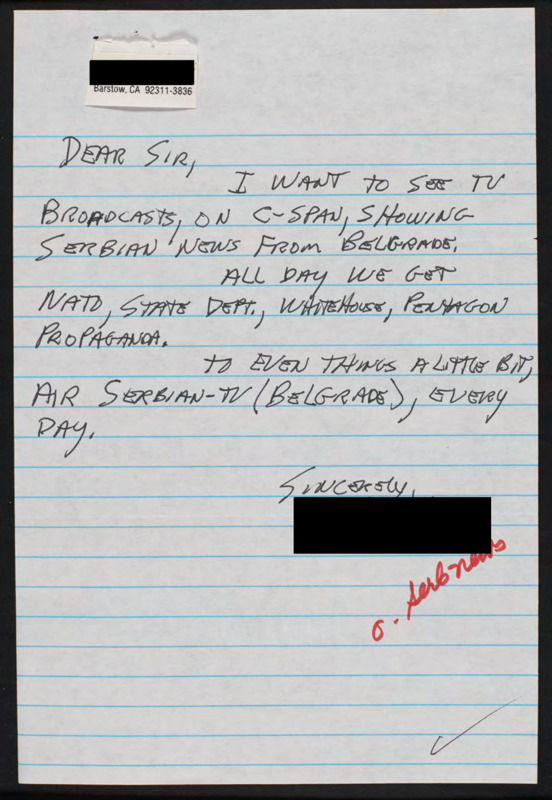 Barstow, CA 92311-3836
DEAR SIR,
I WANT TO SEE TV
BROADCASTS, ON C-SPAN, SHOWING
SERBIAN NEWS FROM BELGRADE.
ALL DAY WE GET
NATO, STATE DEPT., WHITEHOUSE, PENTAGON
PROPAGANDA.
TO EVEN THINGS A LITTLE BIT,
AIR SERBIAN-TV (BELGRADE), EVERY
DAY.
SINCERELY,
o. Serb news